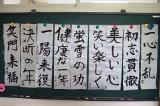 一心不乱
初志貫徹
美しい心
笑い楽しく
蛍雪の功
健康な年
一陽来復
決断の年
笑門来福